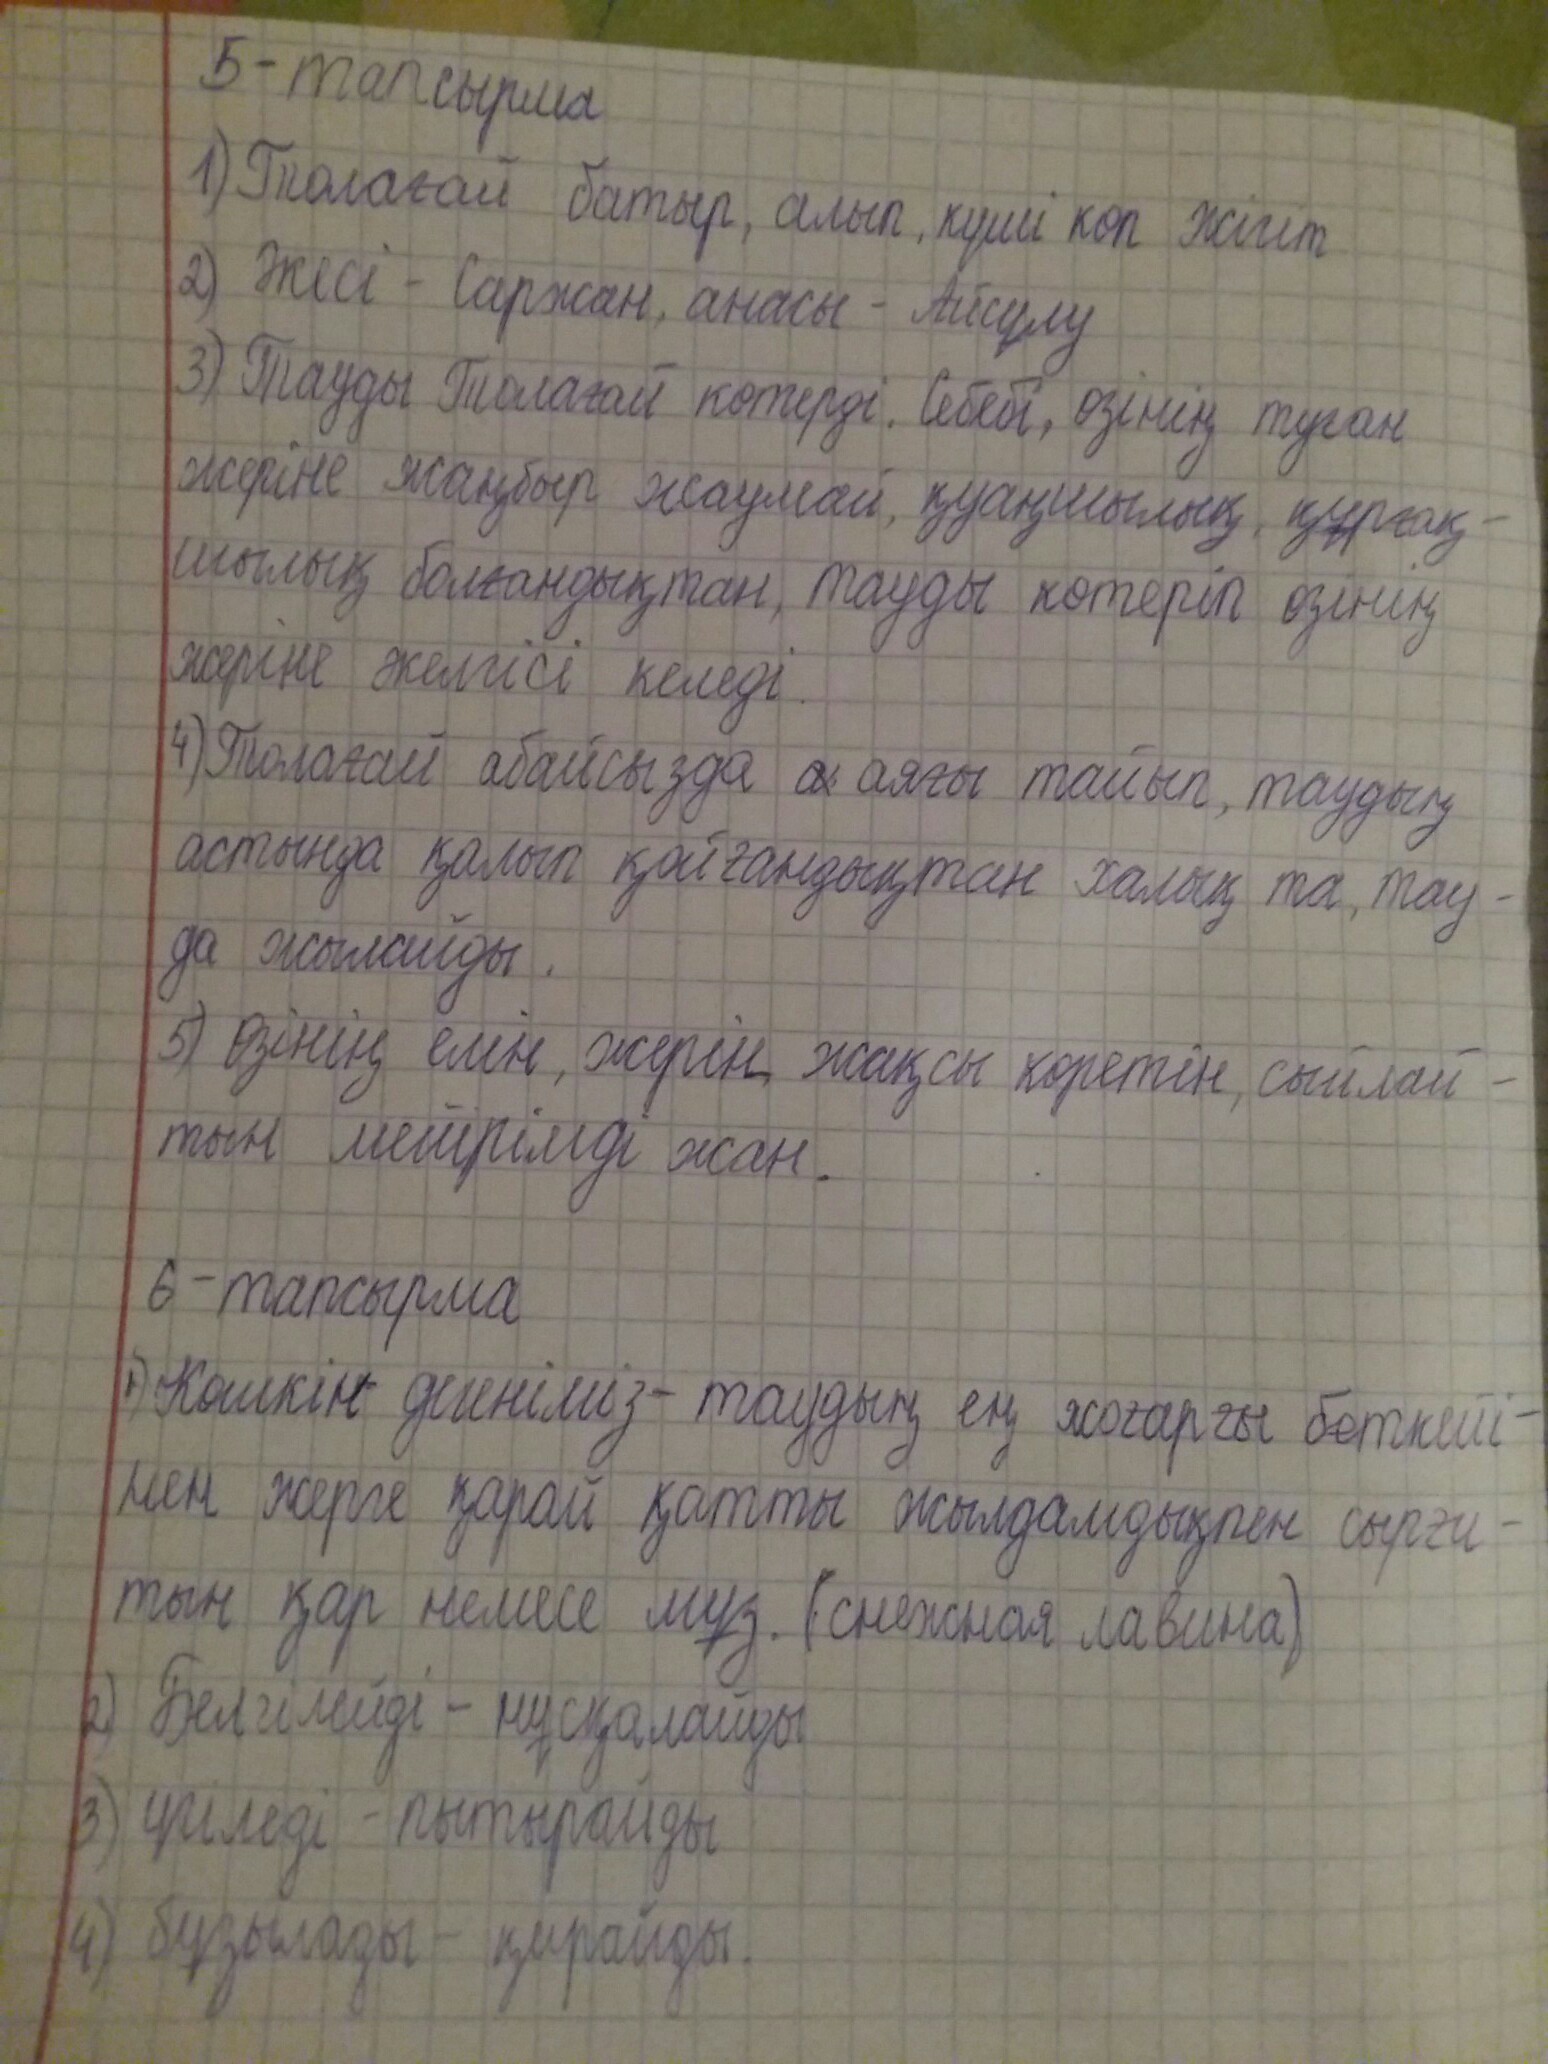 5-тапсырма
1) Толағай батыр, алып, күші көп жігіт
2) Әкесі - Саржан, анасы - Айсұлу
3) Тауды Толағай көтерді. Себебі, өзінің туған
жеріне жаңбыр жаумай, қуаңшылық, құрғақ-
шылық болғандықтан, тауды көтеріп өзінің
жеріне келеді.
4) Толағай абайсызда аяғы тайып, таудың
астында қалып қойғандықтан халық та, тау-
да жылайды.
5) Өзінің елін, жерін жақсы көретін, сыйлай-
тын мейірімді жан.
6-тапсырма
1) Көшкін дегеніміз - таудың ең жоғарғы беткейі-
нен жерге қарай қатты жылдамдықпен сырғи-
тын қар немесе мұз. (снежная лавина)
2) Белгілейді - нұсқалайды
3) үгіледі - пытырайды
4) бұзылады - қирайды.